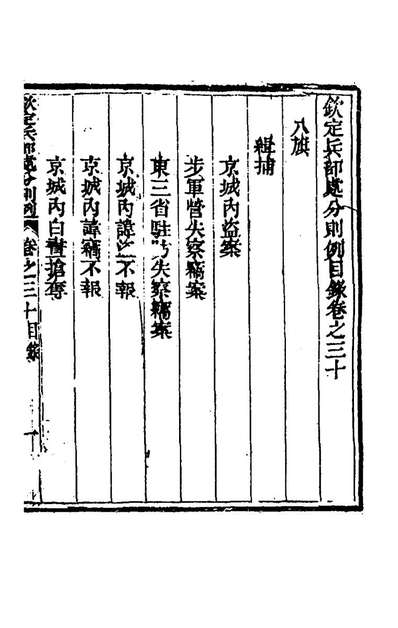 欽定兵部處分則例目錄卷之三十
八旗
緝捕
京城內盜案
步軍營失察竊案
東三省駐防失察竊案
京城內諱盜不報
京城內諱竊不報
京城內白晝搶奪
欽定兵部處分則例 卷之三十目錄 一